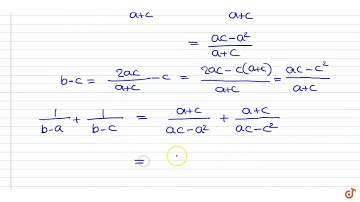 a+c a+c
= ac-a²/a+c
b-c = 2ac/a+c - c = 2ac-c(a+c)/a+c = ac-c²/a+c
1/b-a + 1/b-c = a+c/ac-a² + a+c/ac-c²
=